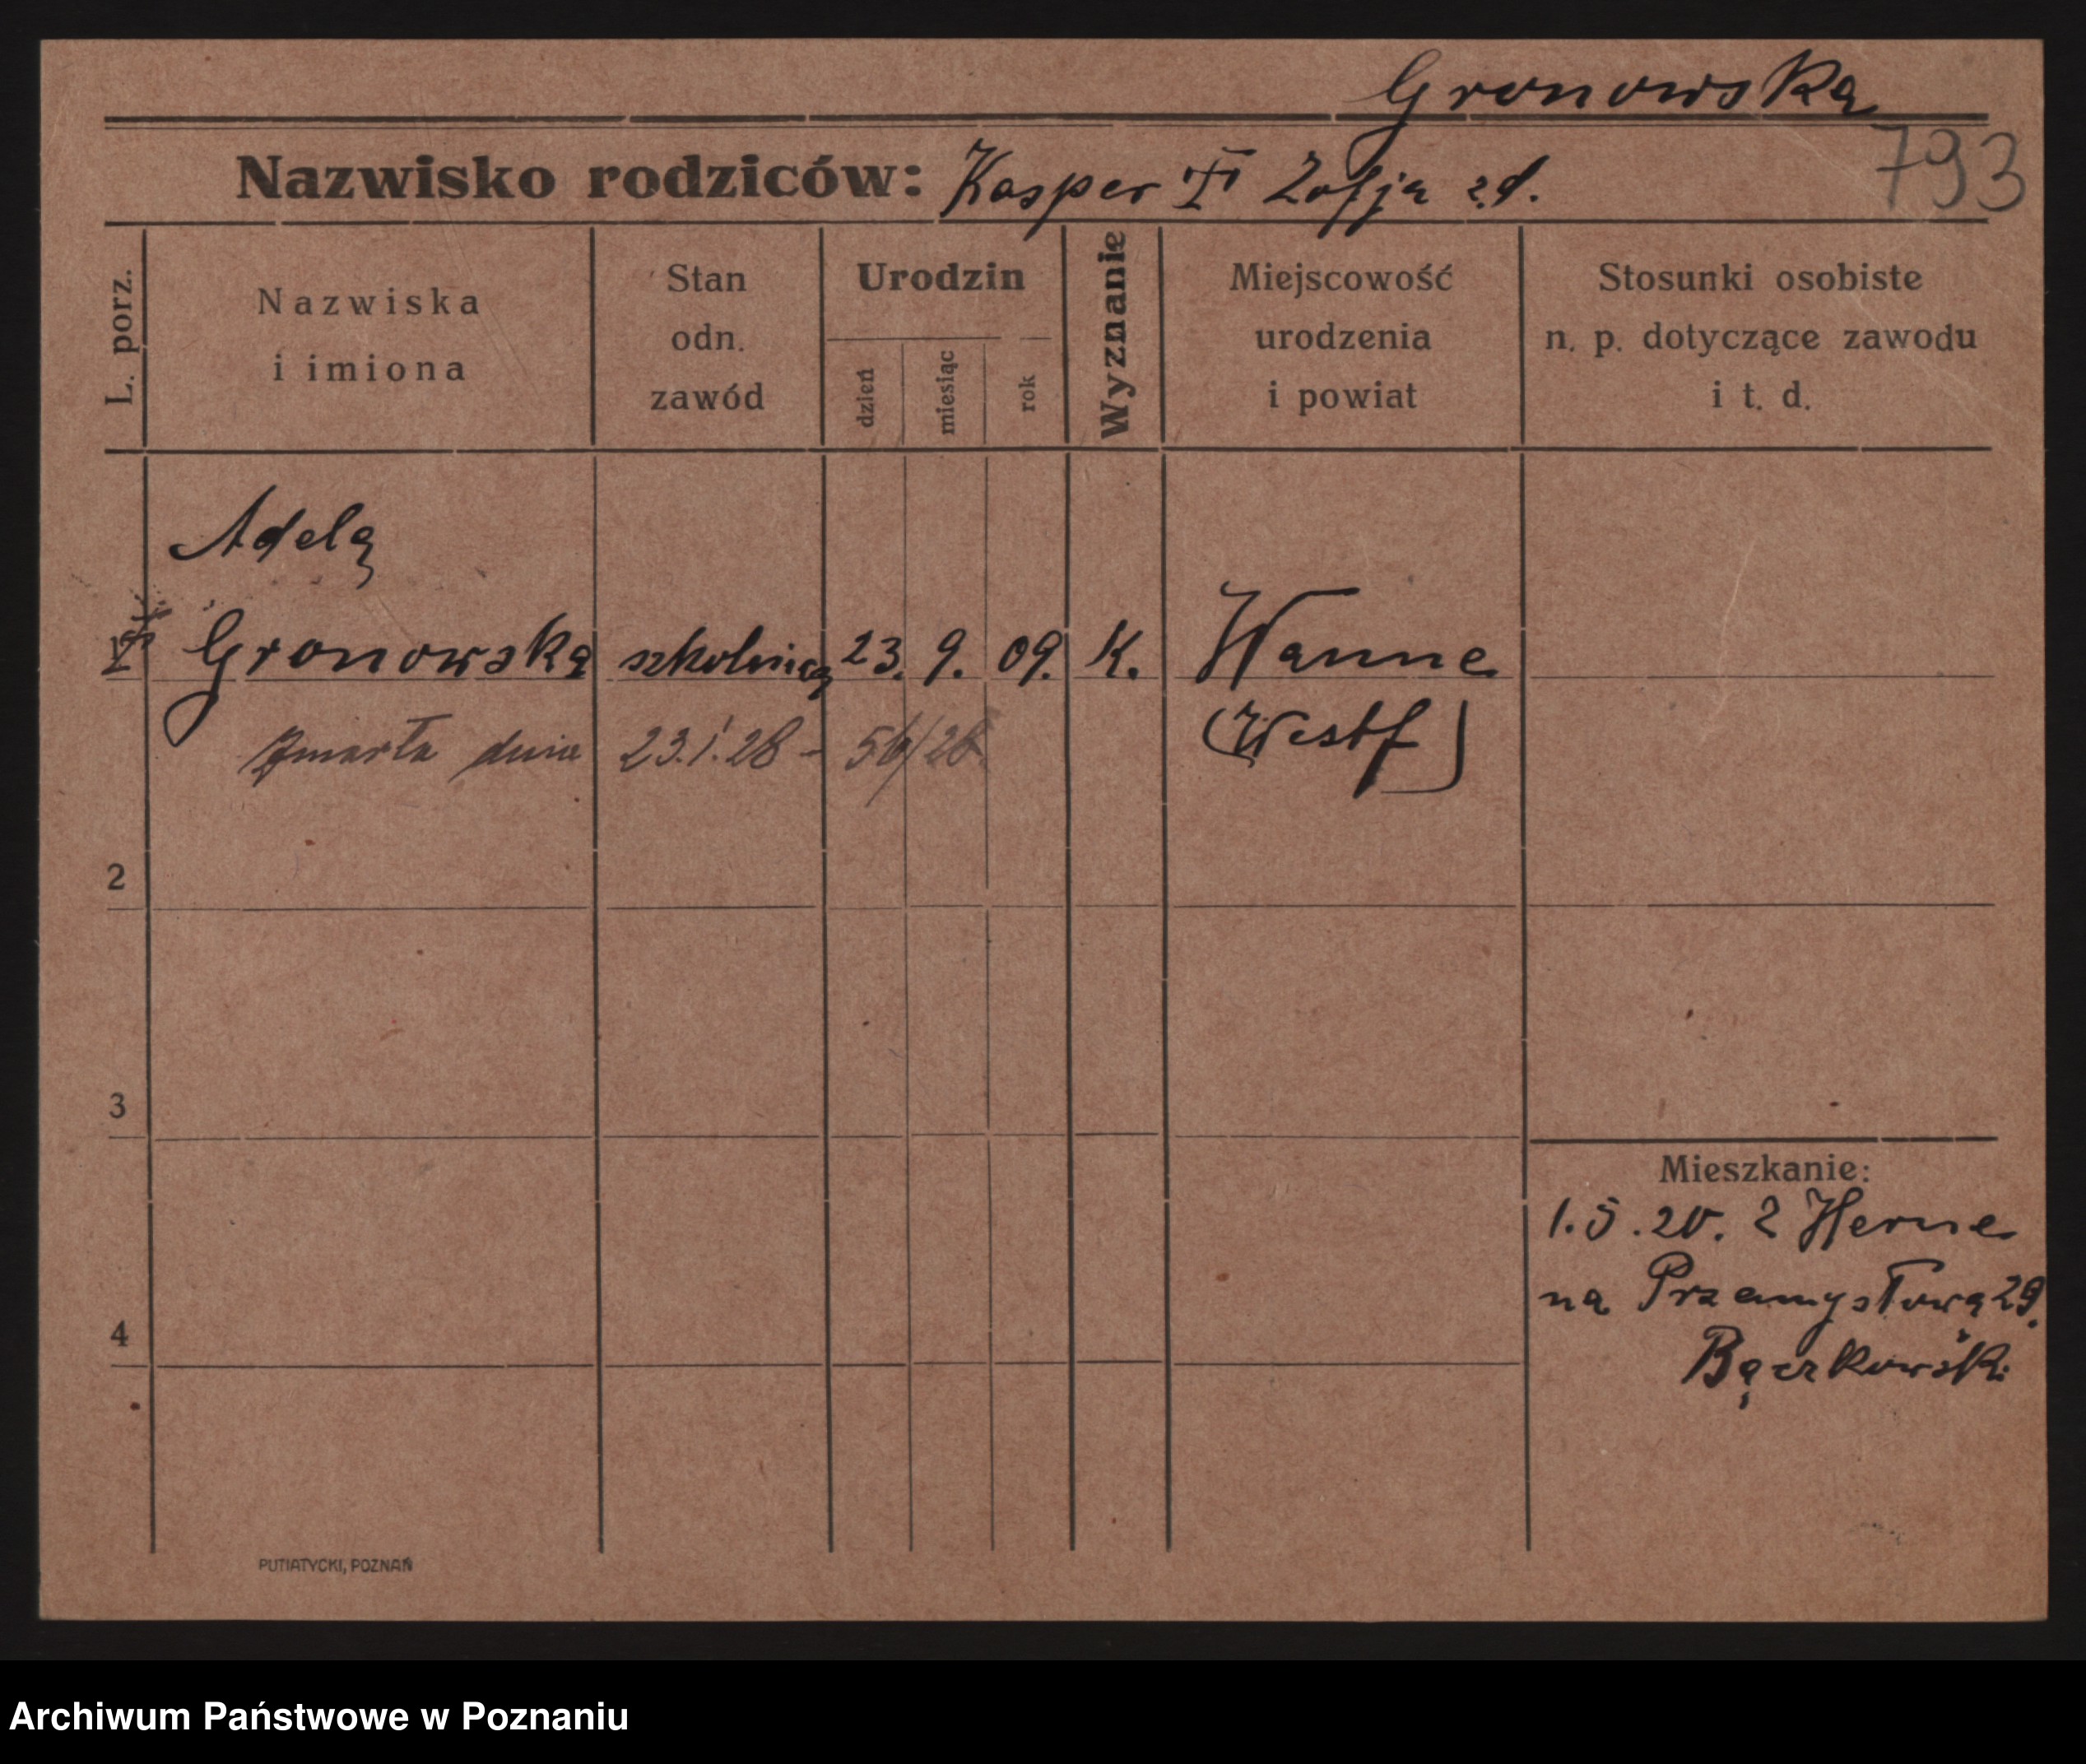 Gronowska
793
Nazwisko rodziców: Kasper Zofja z.d.
L. porz.
Nazwiska
i imiona
Stan
odn.
zawód
Urodzin
dzień
miesiąc
rok
Wyznanie
Miejscowość
urodzenia
i powiat
Stosunki osobiste
n. p. dotyczące zawodu
i t. d.
Adela
1 Gronowska szkolnica 23. 9. 09. K. Wanne
(Westf)
Zmarła dnia 23.1.28 - 56/28
2
3
Mieszkanie:
1.5.20. z Herne
na Przemysłową 29.
4
Bączkowski
PUTIATYCKI, POZNAŃ
Archiwum Państwowe w Poznaniu